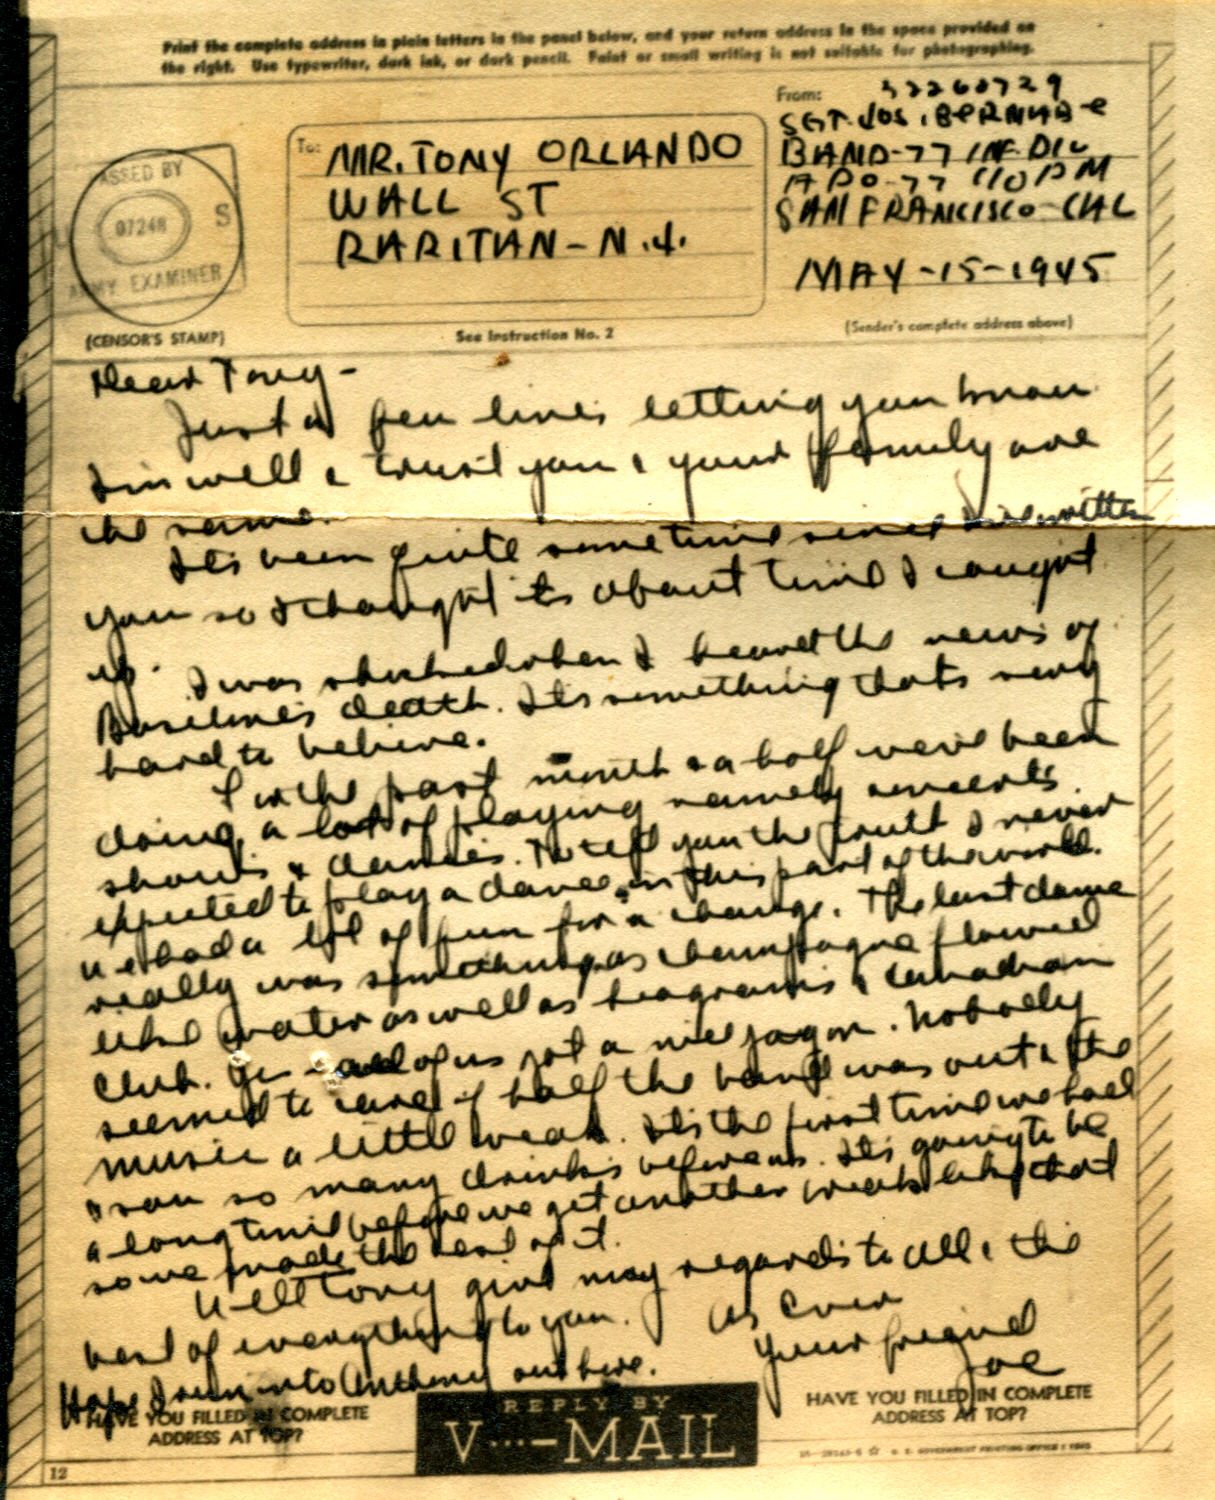 Print the complete address in plain letters in the panel below, and your return address in the space provided on
the right. Use typewriter, dark ink, or dark pencil. Faint or small writing is not suitable for photographing.
ASSED BY
07248
S
ARMY EXAMINER
(CENSOR'S STAMP)
To:
MR. TONY ORLANDO
WALL ST
RARITAN - N.J.
See Instruction No. 2
From:
32260729
SGT. JOS. BERNABE
BAND-77 INF. DIV
APO-77 C/O PM
SAN FRANCISCO-CAL
MAY-15-1945
(Sender's complete address above)
Dear Tony -
Just a few lines letting you know
I'm well & trust you & your family are
the same.
Its been quite sometime since I've written
you so I thought its about time I caught
up. I was shocked when I heard the news of
Basilone's death. Its something thats very
hard to believe.
For the past month & a half we've been
doing a lot of playing namely concerts
shows & dances. To tell you the truth I never
expected to play a dance in this part of the world.
We had a lot of fun for a change. The last dance
really was something as champagne flowed
like water as well as Seagrams & Canadian
Club. Yes - all of us got a nice jag on. Nobody
seemed to care if half the band was out & the
music a little weak. Its the first time we had
so many drinks before us. Its going to be
a long time before we get another break like that
so we made the best of it.
Well Tony give my regards to all & the
best of everything to you. As Ever
Your friend
Joe
Hope I run into Anthony out here.
HAVE YOU FILLED IN COMPLETE
ADDRESS AT TOP?
REPLY BY
V···—MAIL
HAVE YOU FILLED IN COMPLETE
ADDRESS AT TOP?
U. S. GOVERNMENT PRINTING OFFICE
12